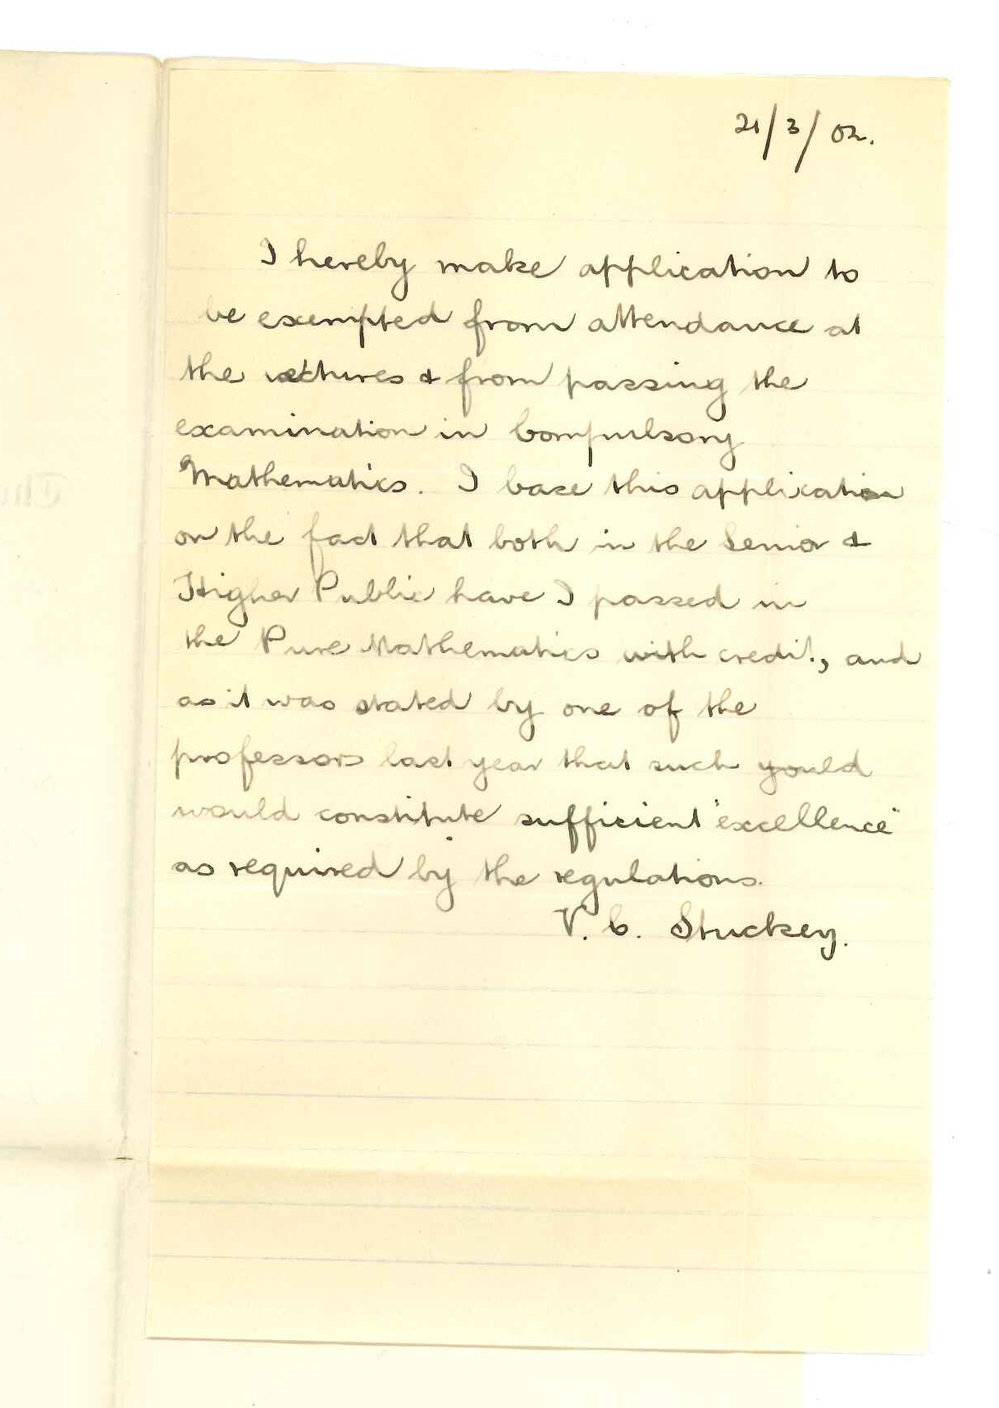 21/3/02.
I hereby make application to
be exempted from attendance at
the lectures & from passing the
examination in Compulsory
Mathematics. I base this application
on the fact that both in the Senior &
Higher Public have I passed in
the Pure Mathematics with credit, and
as it was stated by one of the
professors last year that such would
would constitute sufficient "excellence"
as required by the regulations.
V. C. Stuckey.